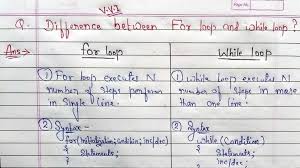 V.V.I
Q. Difference between For loop and while loop?
Ans→ for loop While loop
① For loop executes N
number of steps perform
in Single line.
① While loop executes N
number of steps in more
than one line.
② Syntax -
for(initialization; condition; inc/dec)
{ Statements;
② Syntax
while (Condition)
{ Statements;
inc/dec;